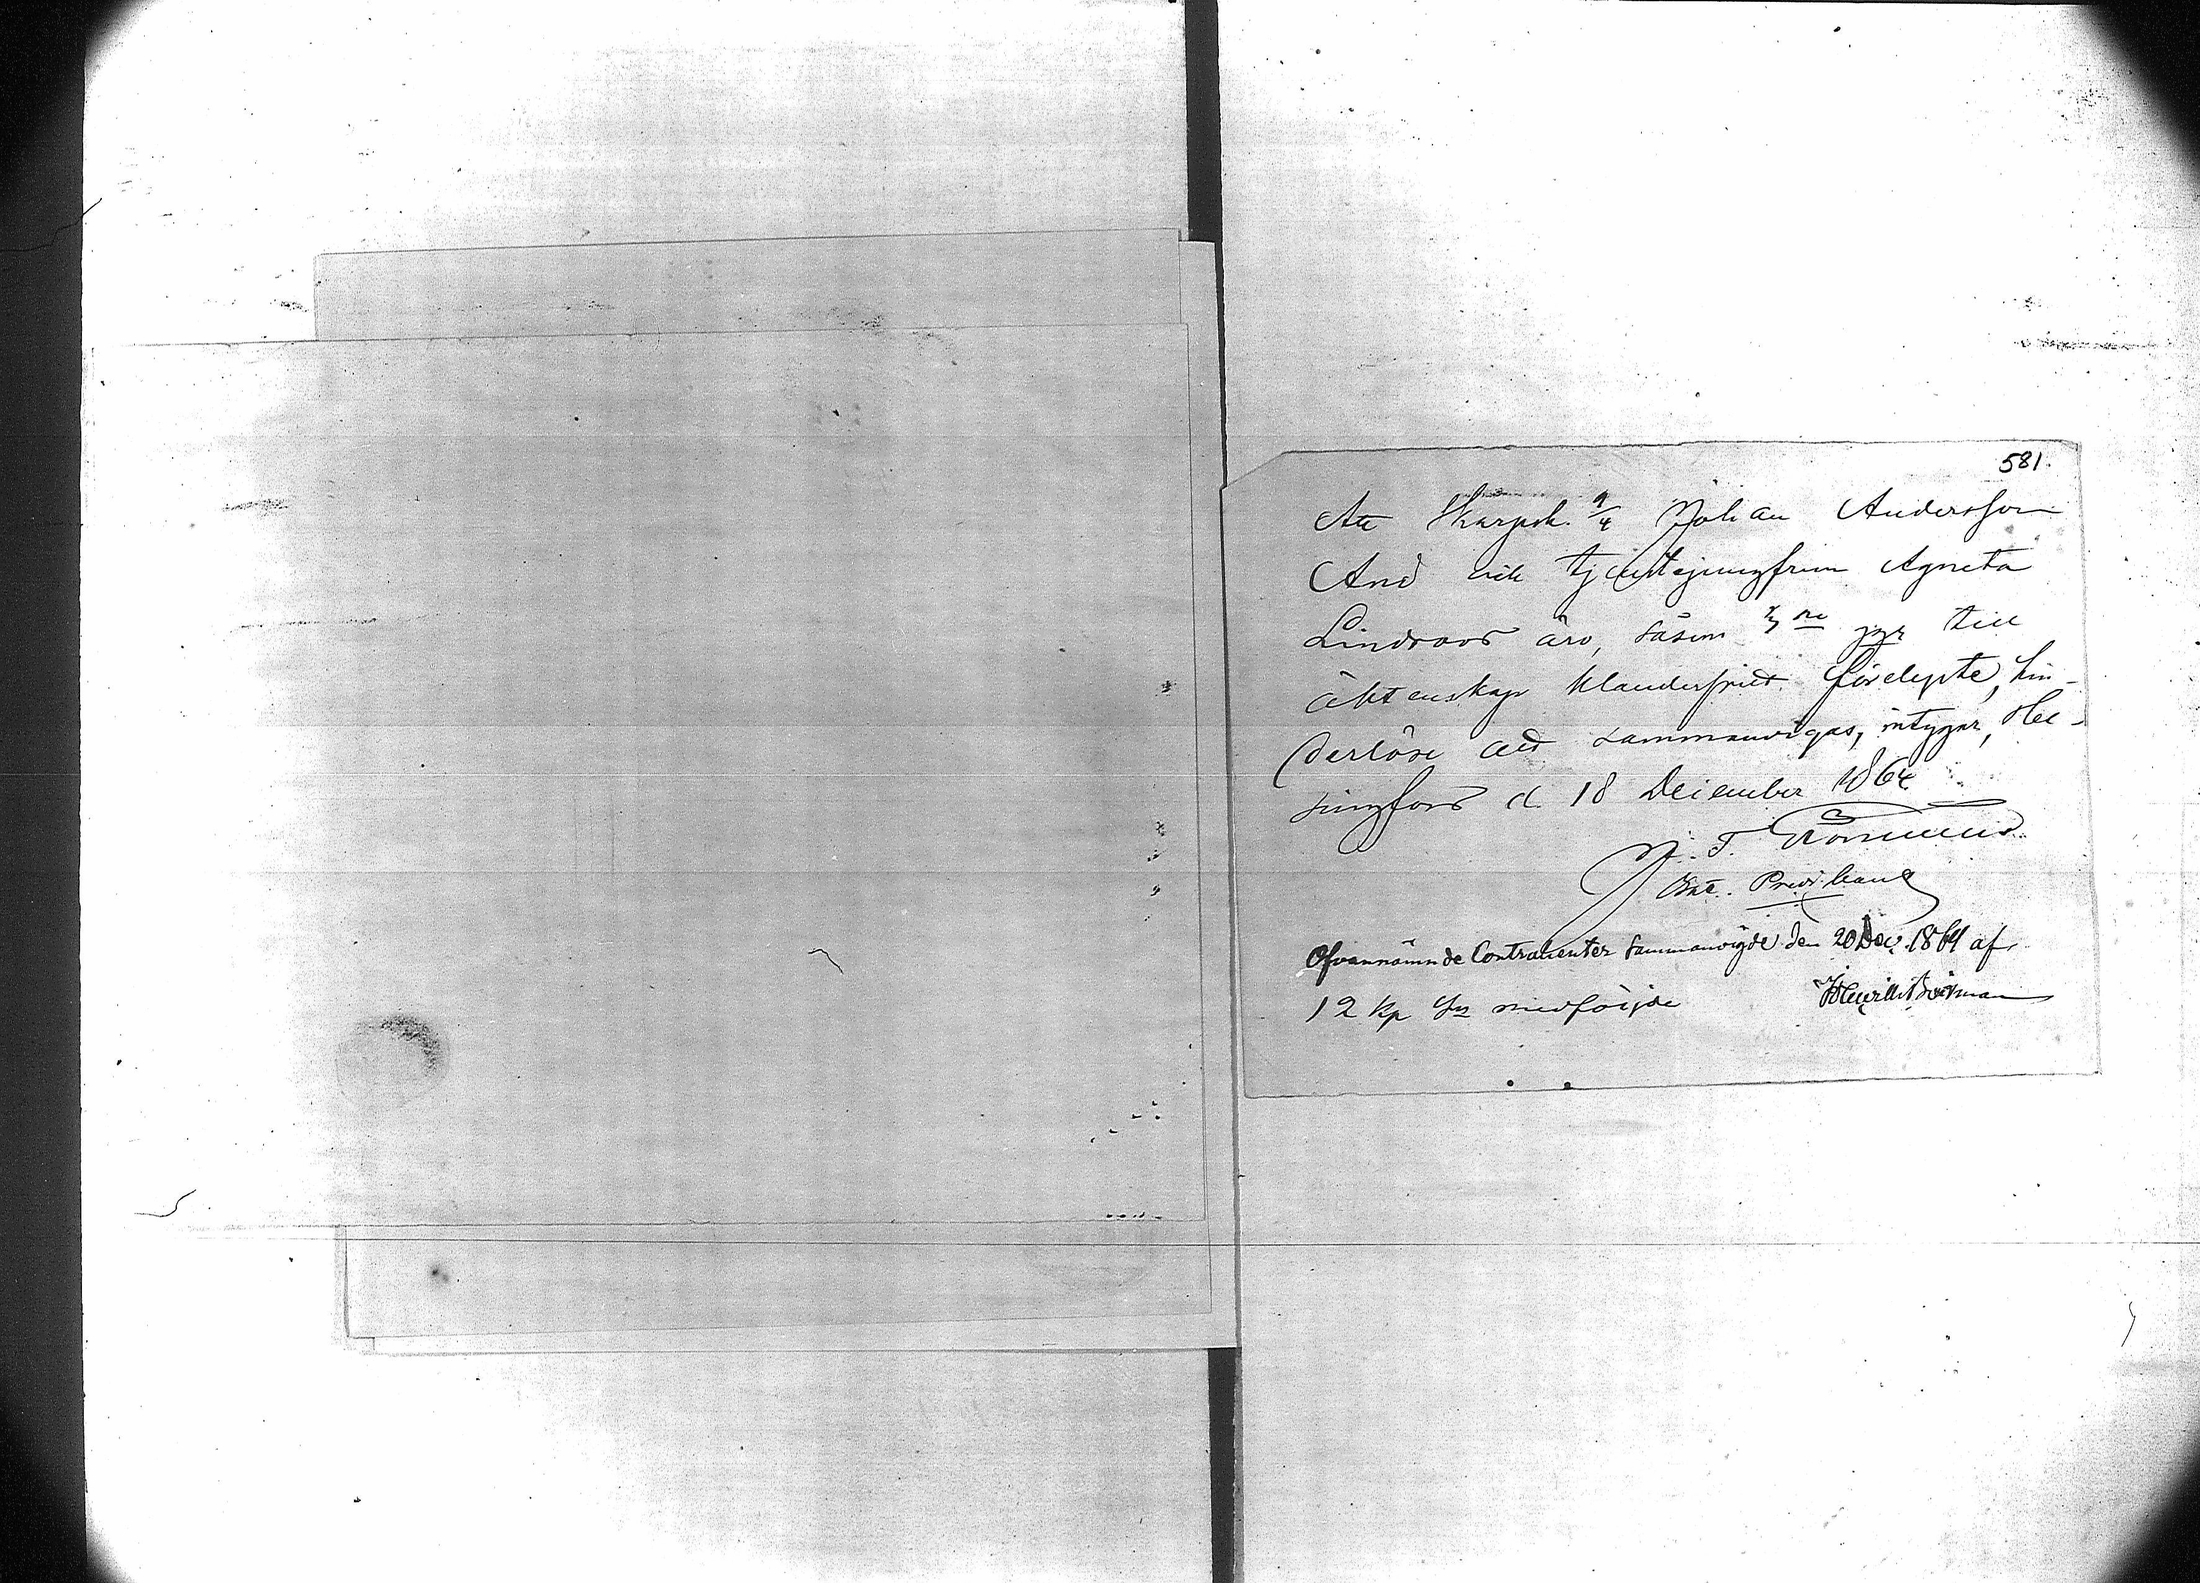 581.
Att Skarpsk. 9/4 Johan Andersson
And och tjenstejungfrun Agneta
Lindroos äro, såsom ggr till
äktenskap klanderfritt förelyste, hin-
derlöse att sammanvigas, intygar, Hel-
singfors d. 18 December 1864
J. F.
Ofvannämnde Contrahenter Sammanvigde den 20 Dec. 1864 af
12 kp Sr medföljde